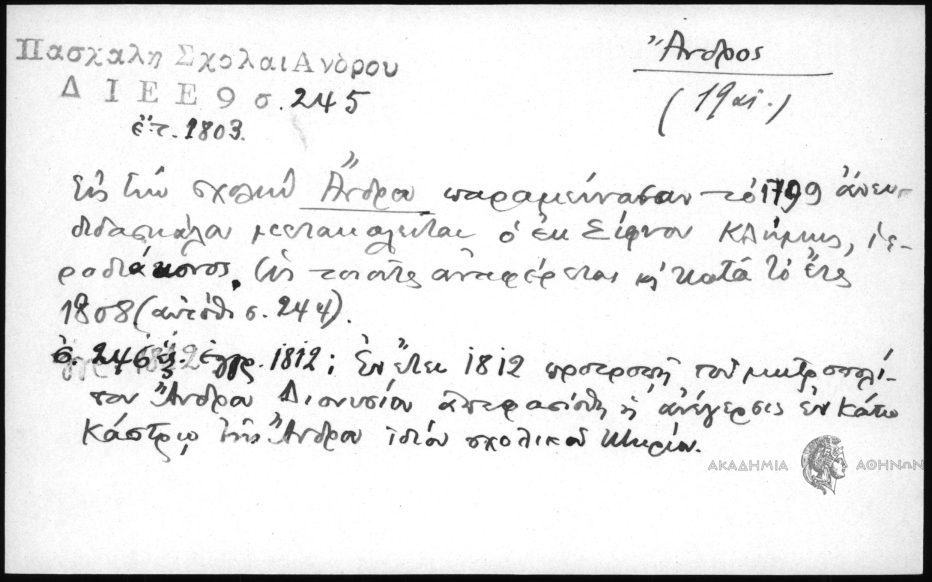 Πασχαλη Σχολαι Ανδρου
Ἄνδρος
Δ Ι Ε Ε 9 σ. 245
(19 αἰ.)
ἔτ. 1803.
Εἰς τὴν σχολὴν Ἄνδρου παραμείνασαν τὸ 1799 ἄνευ
διδασκάλου μετακαλεῖται ὁ ἐκ Σίφνου Κλήμης, ἱε-
ροδιάκονος, ὡς τοιοῦτος ἀναφέρεται κ' κατὰ τὸ ἔτος
1808 (αὐτόθι σ. 244).
σ. 246 ἐξ ἐγγρ. 1812; Ἐν ἔτει 1812 προτροπῇ τοῦ μητροπολί-
του Ἄνδρου Διονυσίου ἀπεφασίσθη ἡ ἀνέγερσις ἐν Κάτω
Κάστρῳ τῆς Ἄνδρου ἰδίου σχολικοῦ κτιρίου.
ΑΚΑΔΗΜΙΑ ΑΘΗΝΩΝ